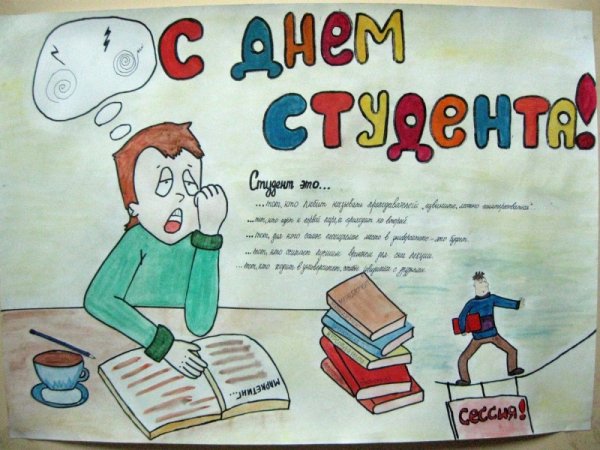 С ДНЕМ
СТУДЕНТА!
Студент это...
...тот, кто любит называть преподавателей „извините, можно поинтересоваться"
...тот, кто идёт к первой паре, а приходит ко второй.
...тот, для кого самое посещаемое место в университете - это буфет.
...тот, кто считает лучшим временем для сна лекции.
...тот, кто ходит в университет, чтобы увидеться с друзьями.
МАРКЕТИНГ...
СЕССИЯ!